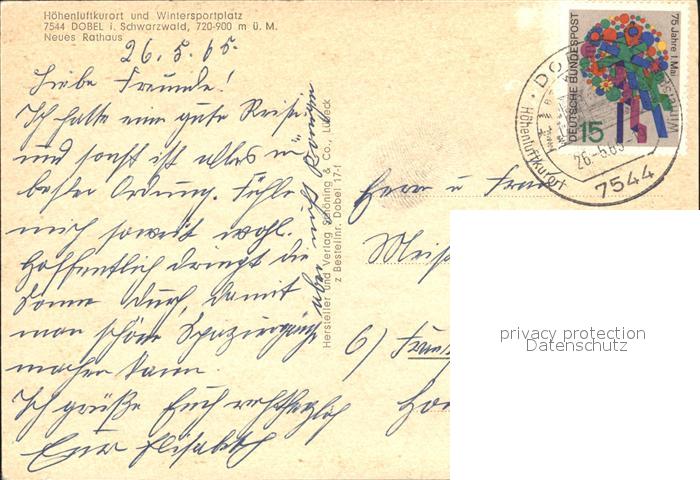 Höhenluftkurort und Wintersportplatz
7544 DOBEL i. Schwarzwald, 720-900 m ü. M.
Neues Rathaus
26. 5. 65.
Liebe Freunde!
Ich hatte eine gute Reise
und sonst ist alles in
bester Ordnung. Fühle
mich soweit wohl.
Hoffentlich dringt die
Sonne durch, damit
man schöne Spaziergänge
machen kann.
Ich grüße Euch recht herzlich
Eure Elisabeth
aber nicht
Hersteller und Verlag Schöning & Co., Lübeck
z Bestellnr. Dobel 17-1
Herrn u Frau
6)
DEUTSCHE BUNDESPOST
15
75 Jahre 1. Mai
Höhenluftkurort
26-5.65
7544
privacy protection
Datenschutz